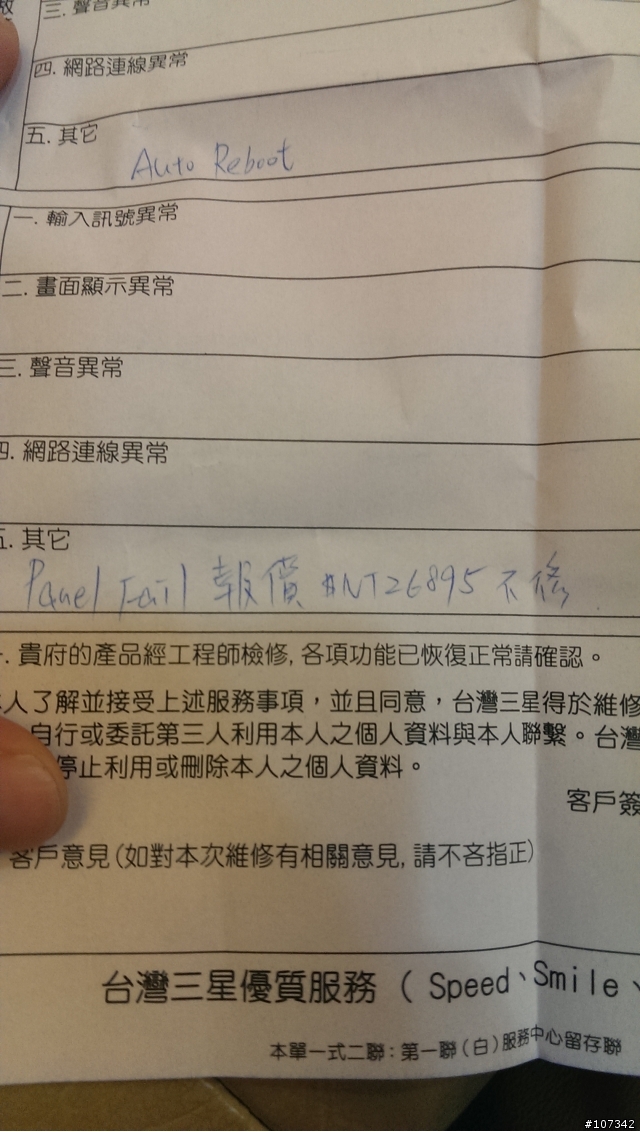 三. 聲音異常
四. 網路連線異常
五. 其它
Auto Reboot
一. 輸入訊號異常
二. 畫面顯示異常
三. 聲音異常
四. 網路連線異常
五. 其它
Panel Fail 報價 #NT26895 不修
. 貴府的產品經工程師檢修, 各項功能已恢復正常請確認。
本人了解並接受上述服務事項，並且同意，台灣三星得於維修
自行或委託第三人利用本人之個人資料與本人聯繫。台灣
停止利用或刪除本人之個人資料。
客戶簽
客戶意見(如對本次維修有相關意見, 請不吝指正)
台灣三星優質服務 ( Speed、Smile、
本單一式二聯：第一聯(白)服務中心留存聯
#107342